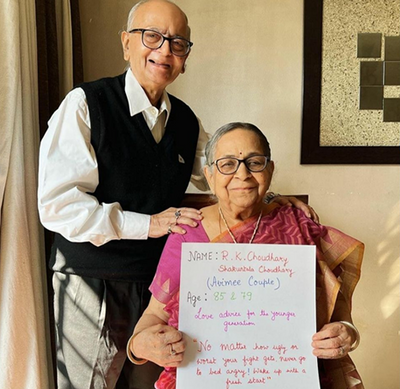 NAME: R. K. Choudhary
Shakuntala Choudhary
(Avimee Couple)
Age: 85 & 79
Love advice for the younger
generation
"No matter how ugly or
worst your fight gets never go
to bed angry! Wake up with a
fresh start"